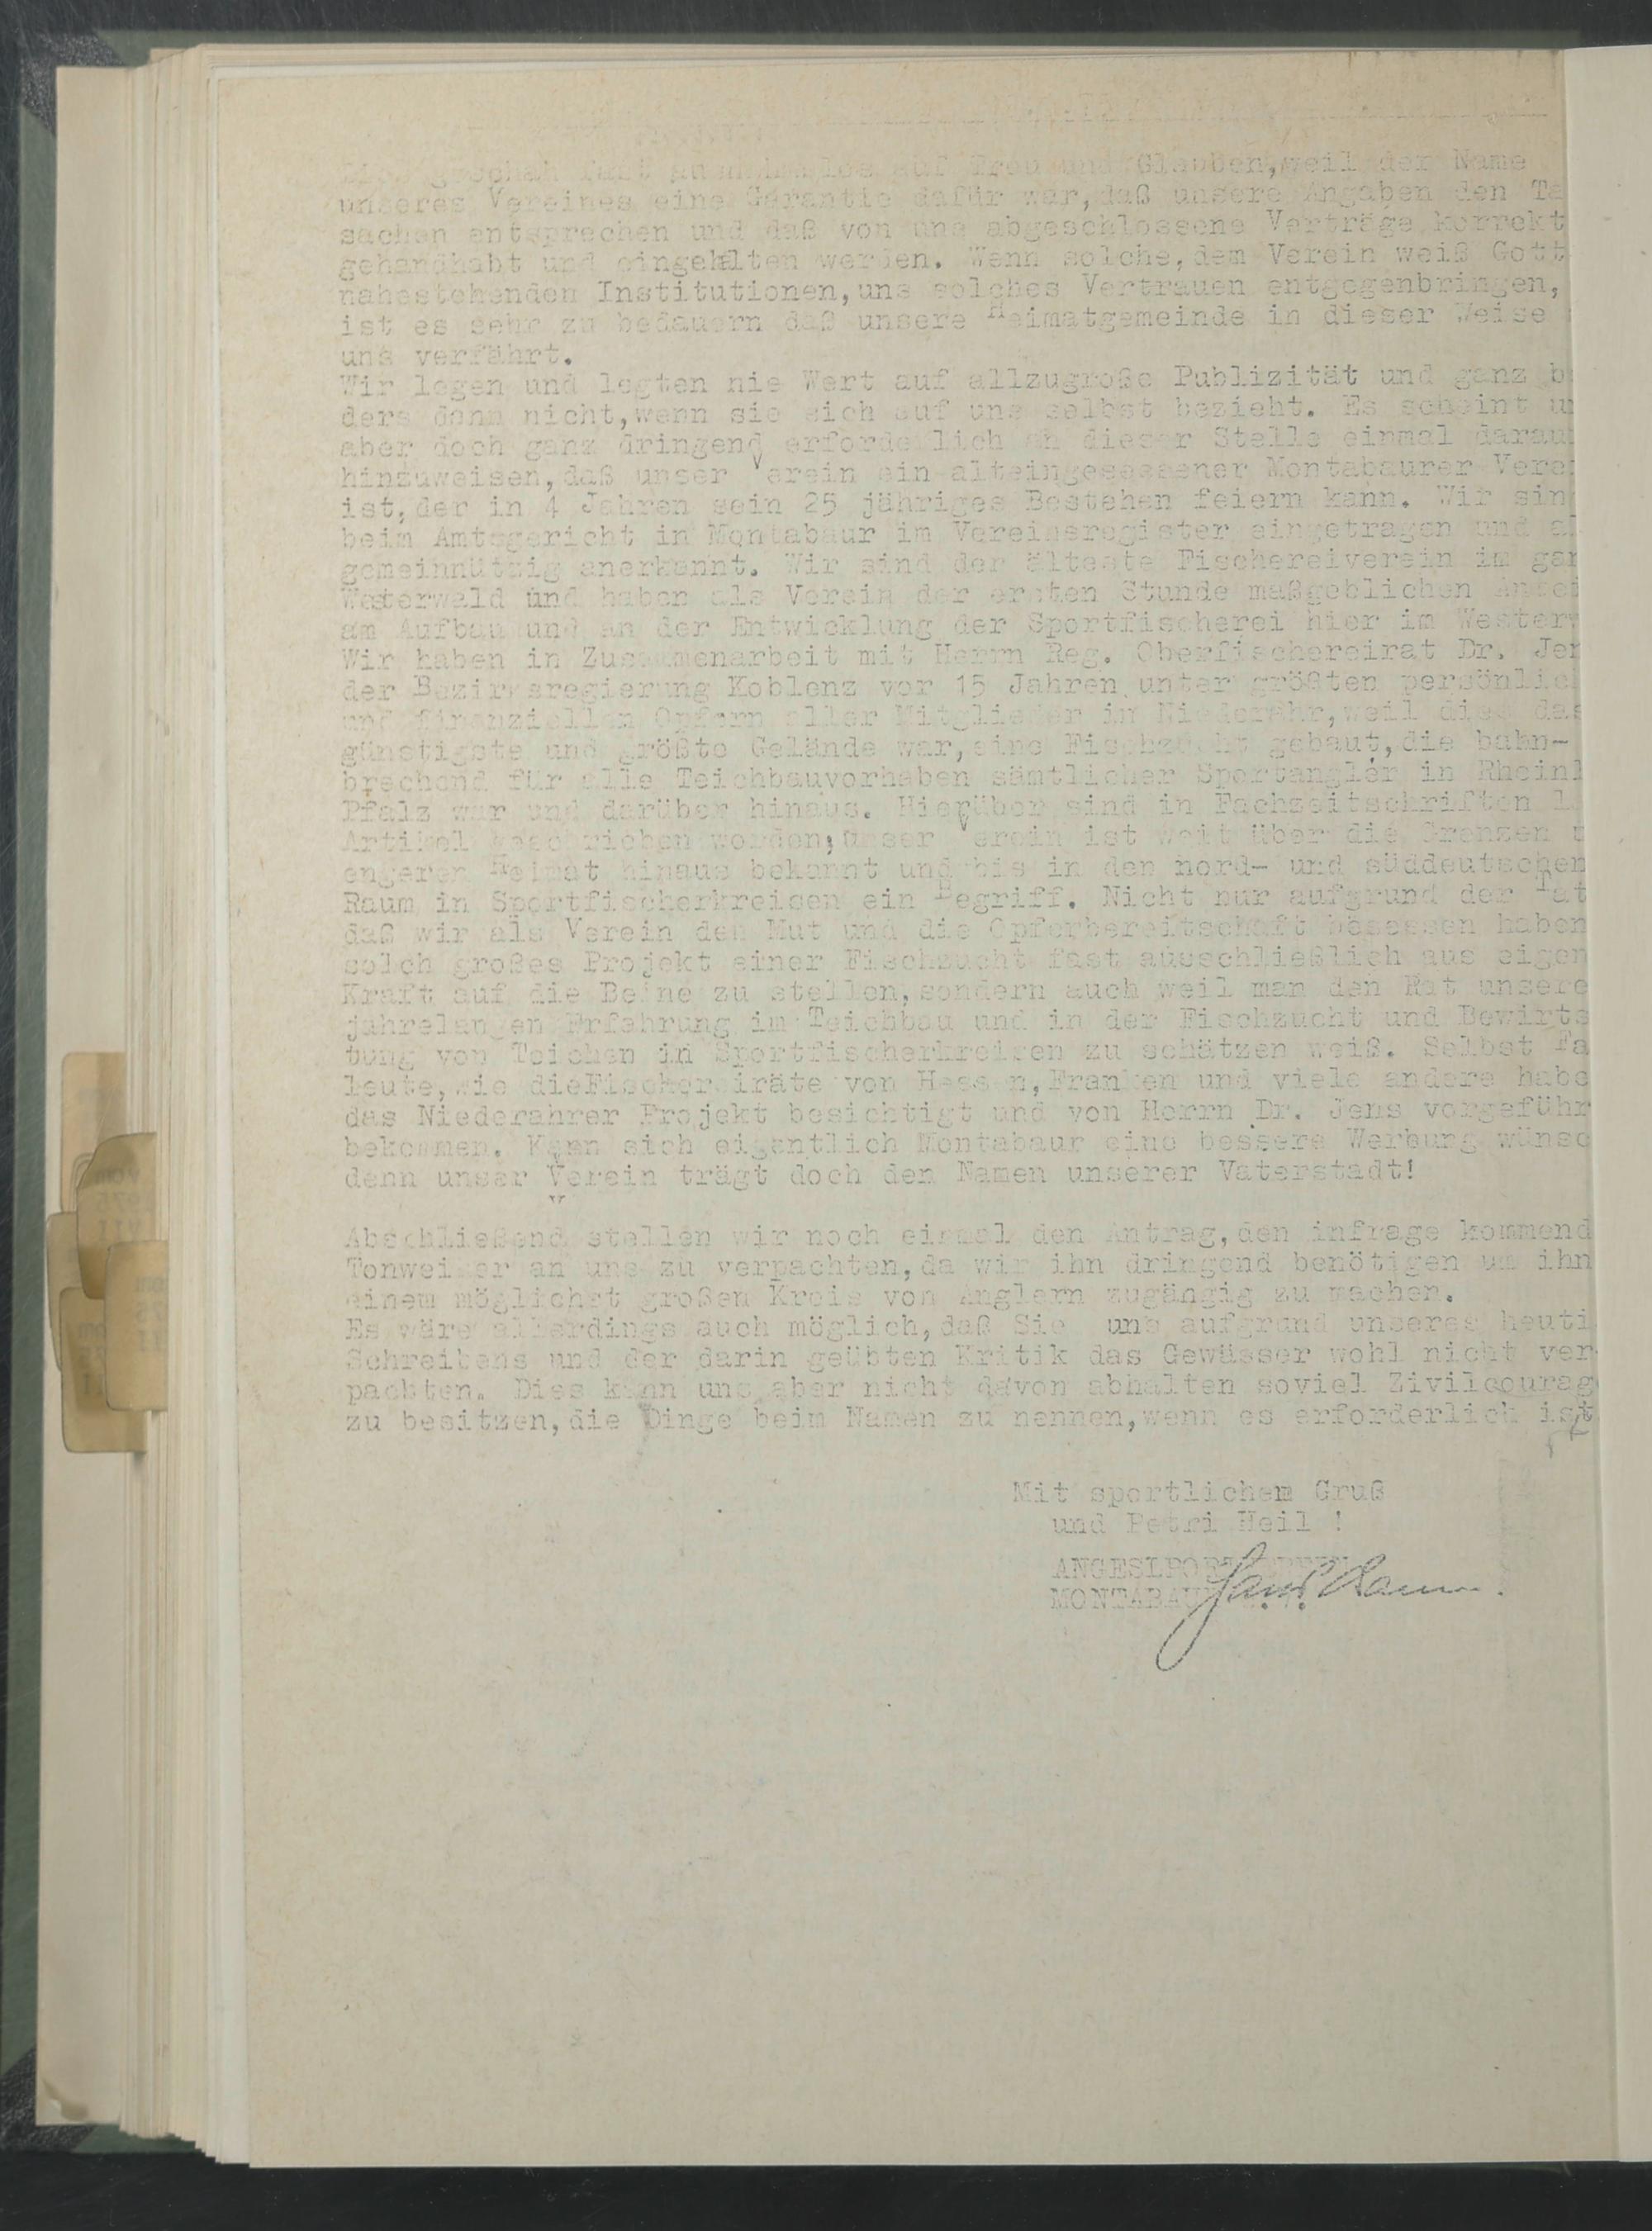 Dies geschah fast ausnahmslos auf Treu und Glauben,weil der Name
unseres Vereines eine Garantie dafür war,daß unsere Angaben den Ta
sachen entsprechen und daß von uns abgeschlossene Verträge korrekt
gehandhabt und eingehalten werden. Wenn solche,dem Verein weiß Gott
nahestehenden Institutionen,uns solches Vertrauen entgegenbringen,
ist es sehr zu bedauern daß unsere Heimatgemeinde in dieser Weise
uns verfährt.
Wir legen und legten nie Wert auf allzugroße Publizität und ganz b
ders dann nicht,wenn sie sich auf uns selbst bezieht. Es scheint u
aber doch ganz dringend erforderlich an dieser Stelle einmal darau
hinzuweisen,daß unser Verein ein alteingesessener Montabaurer Vere
ist,der in 4 Jahren sein 25 jähriges Bestehen feiern kann. Wir sin
beim Amtsgericht in Montabaur im Vereinsregister eingetragen und al
gemeinnützig anerkannt. Wir sind der älteste Fischereiverein im gan
Westerwald und haben als Verein der ersten Stunde maßgeblichen Antei
am Aufbau und an der Entwicklung der Sportfischerei hier im Westerw
Wir haben in Zusammenarbeit mit Herrn Reg. Oberfischereirat Dr. Jen
der Bezirksregierung Koblenz vor 15 Jahren unter größten persönlich
und finanziellen Opfern aller Mitglieder in Niederahr,weil dies das
günstigste und größte Gelände war,eine Fischzucht gebaut,die bahn-
brechend für alle Teichbauvorhaben sämtlicher Sportangler in Rheinl
Pfalz war und darüber hinaus. Hierüber sind in Fachzeitschriften l
Artikel geschrieben worden;unser Verein ist weit über die Grenzen
engeren Heimat hinaus bekannt und bis in den nord- und süddeutschen
Raum in Sportfischerkreisen ein Begriff. Nicht nur aufgrund der Tat
daß wir als Verein den Mut und die Opferbereitschaft besessen haben
solch großes Projekt einer Fischzucht fast ausschließlich aus eigen
Kraft auf die Beine zu stellen,sondern auch weil man den Rat unsere
jahrelangen Erfahrung im Teichbau und in der Fischzucht und Bewirts
tung von Teichen in Sportfischerkreisen zu schätzen weiß. Selbst Fa
leute,wie dieFischereiräte von Hessen,Franken und viele andere habe
das Niederahrer Projekt besichtigt und von Herrn Dr. Jens vorgeführ
bekommen. Kann sich eigentlich Montabaur eine bessere Werbung wünsc
denn unser Verein trägt doch den Namen unserer Vaterstadt!
Abschließend stellen wir noch einmal den Antrag,den infrage kommend
Tonweiher an uns zu verpachten,da wir ihn dringend benötigen um ihn
einem möglichst großen Kreis von Anglern zugängig zu machen.
Es wäre allerdings auch möglich,daß Sie uns aufgrund unseres heuti
Schreibens und der darin geübten Kritik das Gewässer wohl nicht ver
pachten. Dies kann uns aber nicht davon abhalten soviel Zivilcourag
zu besitzen,die Dinge beim Namen zu nennen,wenn es erforderlich ist
Mit sportlichem Gruß
und Petri Heil !
ANGESLPORTVEREIN
MONTABAUR e.V.